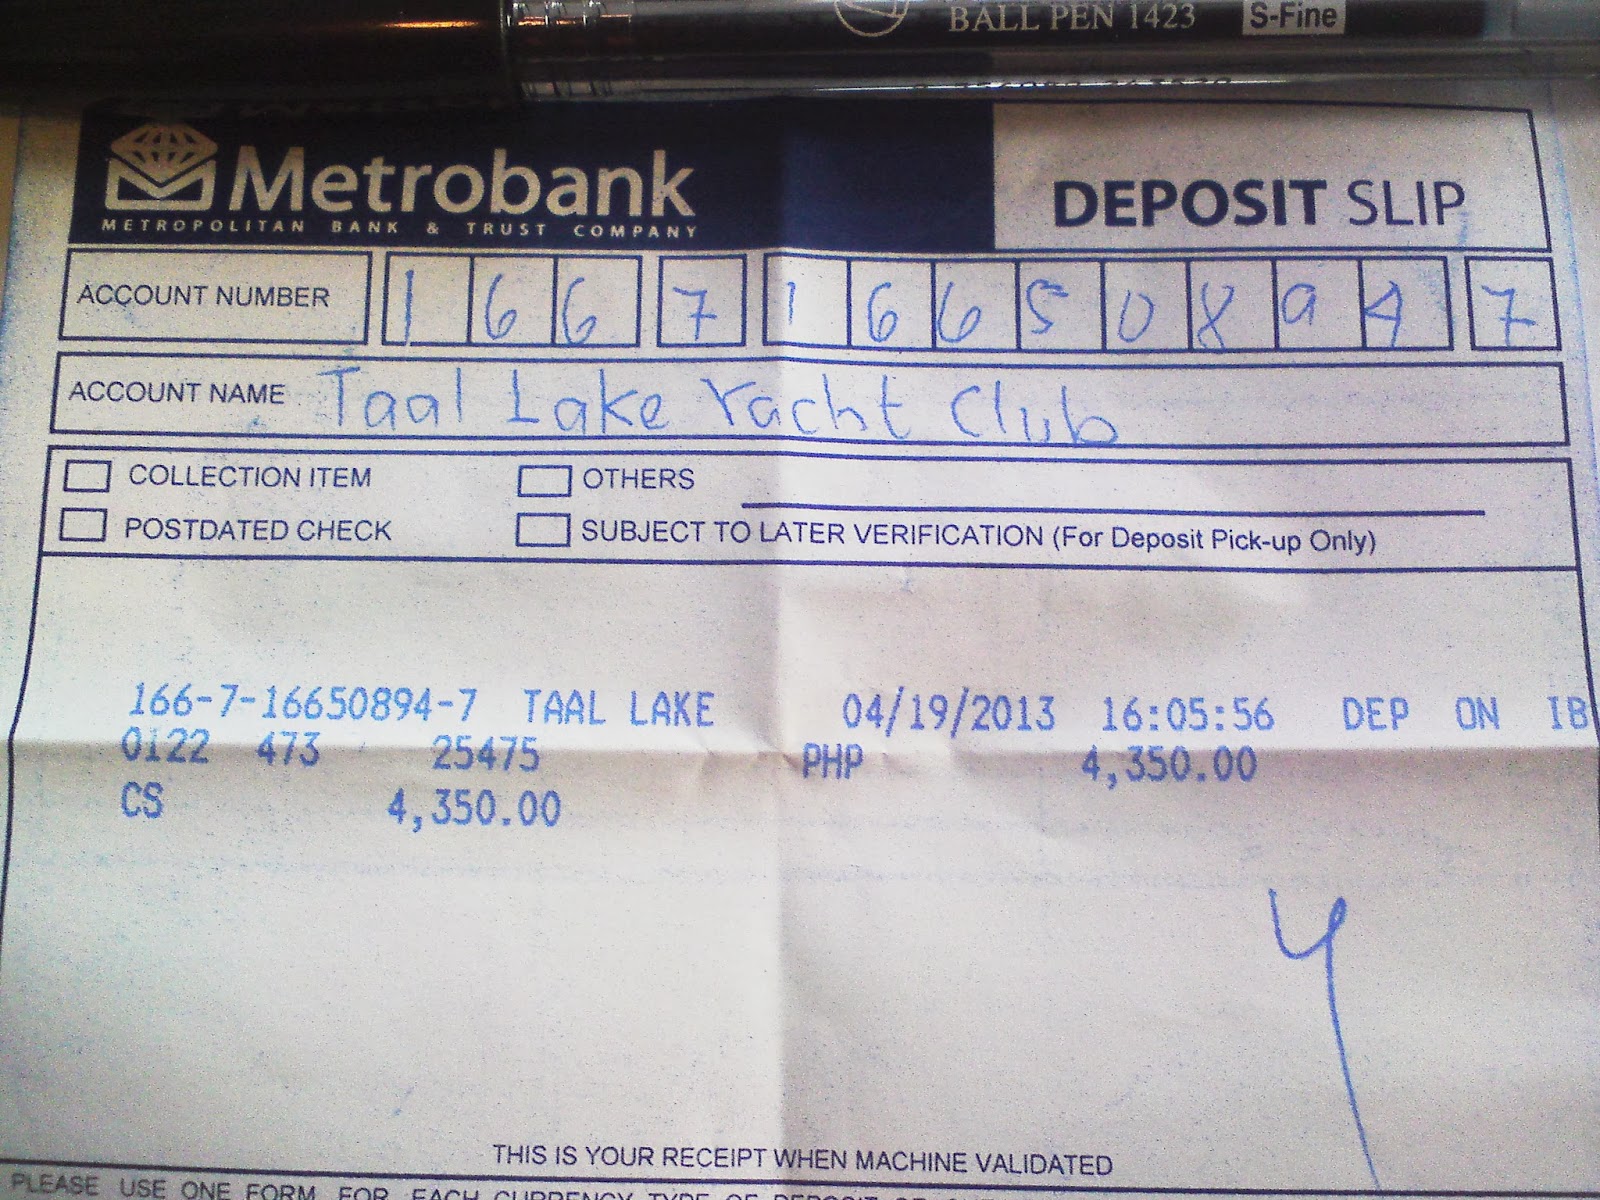 BALL PEN 1423 S-Fine
Metrobank
METROPOLITAN BANK & TRUST COMPANY
DEPOSIT SLIP
ACCOUNT NUMBER 1 6 6 7 1 6 6 5 0 8 9 4 7
ACCOUNT NAME Taal Lake Yacht Club
COLLECTION ITEM OTHERS
POSTDATED CHECK SUBJECT TO LATER VERIFICATION (For Deposit Pick-up Only)
166-7-16650894-7 TAAL LAKE 04/19/2013 16:05:56 DEP ON IB
0122 473 25475 PHP 4,350.00
CS 4,350.00
THIS IS YOUR RECEIPT WHEN MACHINE VALIDATED
PLEASE USE ONE FORM FOR EACH CURRENCY TYPE OF DEPOSIT